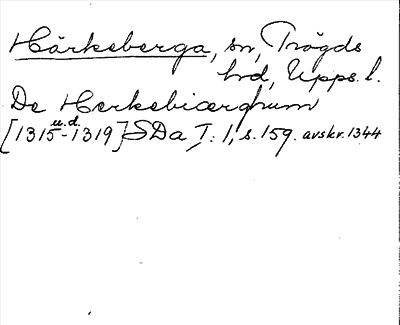 Härkeberga, sn, Trögds
hrd, Upps. l.
De Herkebiærghum
[1315 u.d. - 1319] SDa I: 1, s. 159. avskr. 1344